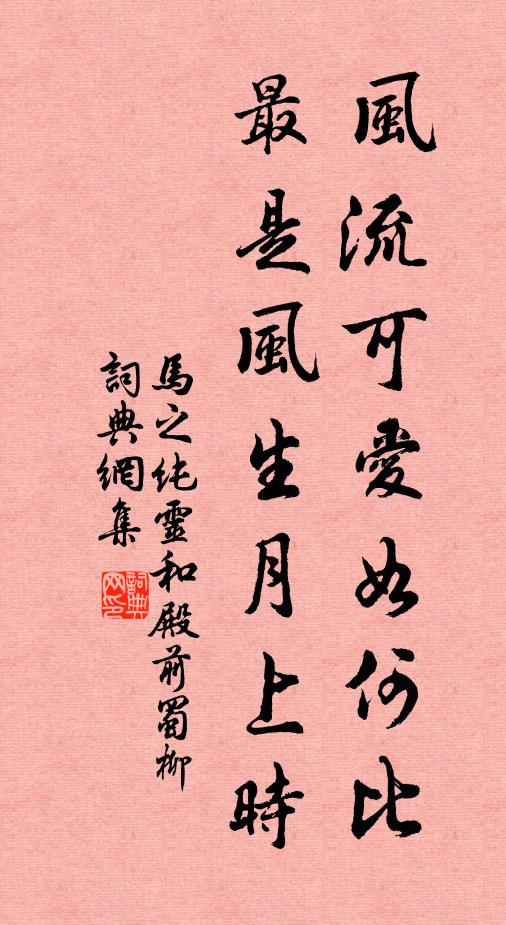 風流可愛如何比
最是風生月上時
馬之純靈和殿前蜀柳
詞典網集
詞典网印